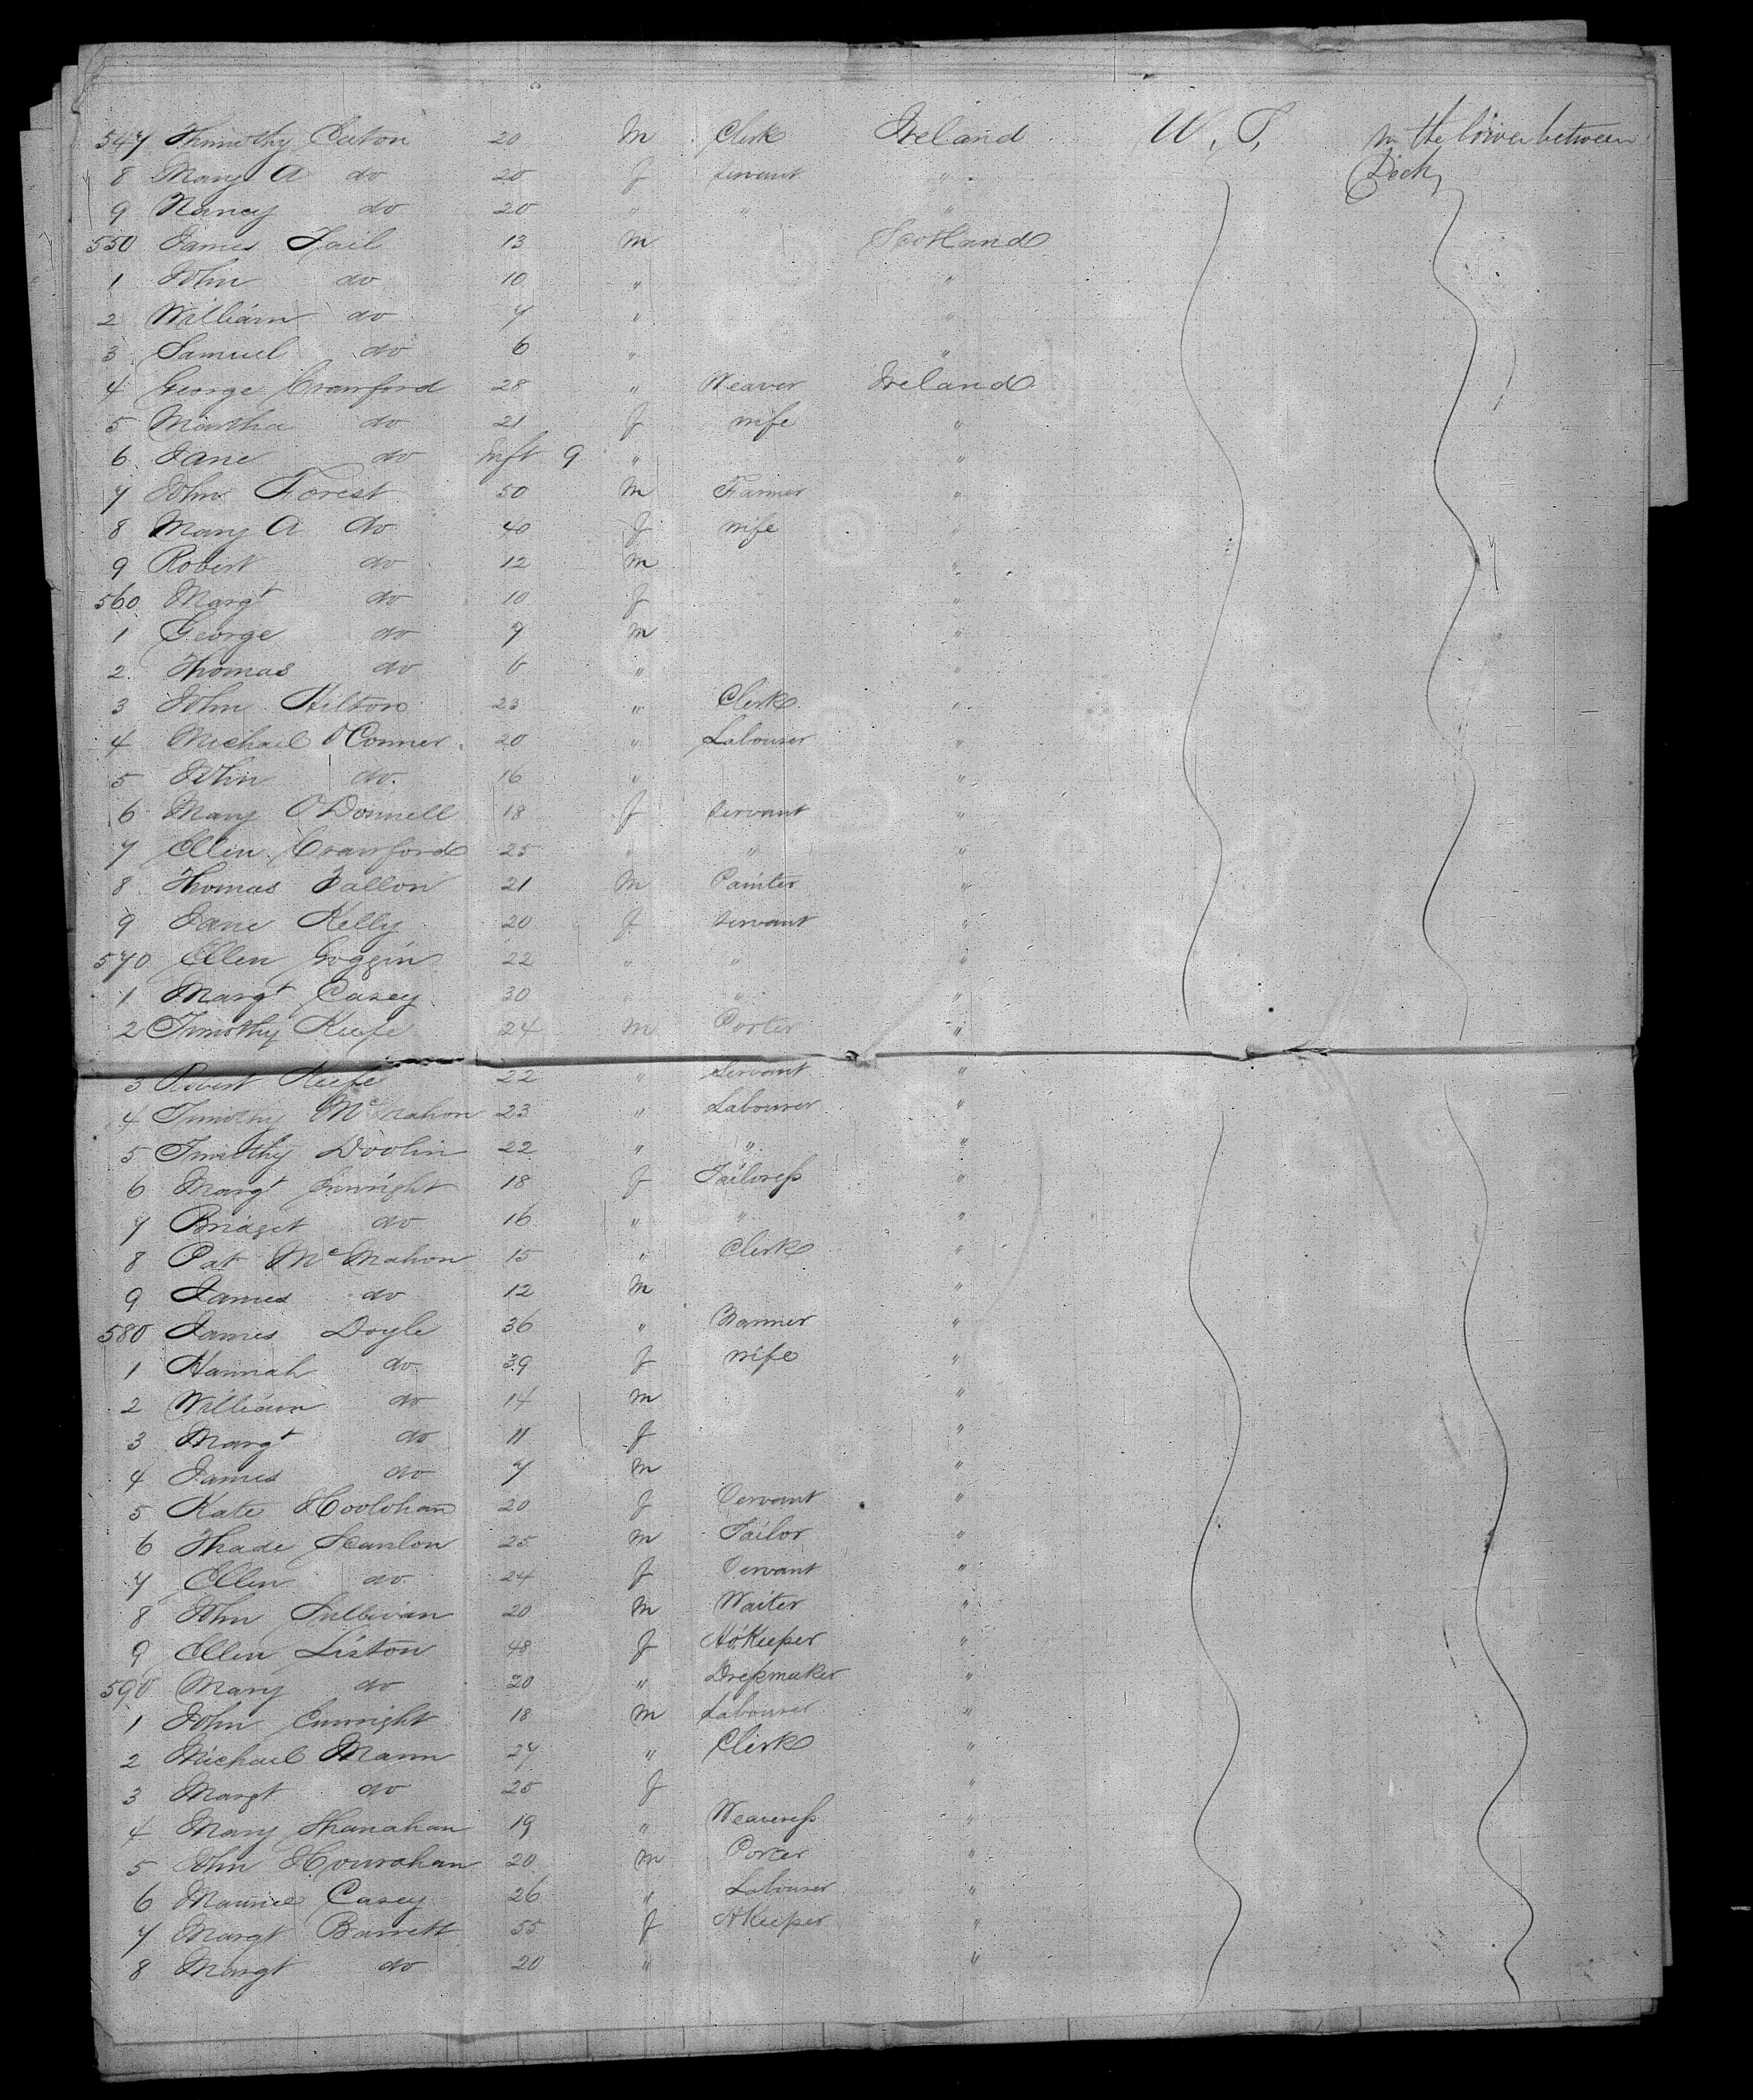 547 Thimothy Eaton 20 M Clerk Ireland W. T. In the lower between
8 Mary A do 20 f servant " Deck
9 Nancy do 20 " " "
550 James Fail 13 M Scotland
1 John do 10 " "
2 William do 7 " "
3 Samuel do 6 " "
4 George Crawford 28 " Weaver Ireland
5 Martha do 21 f wife "
6 Jane do Inft 9 " "
7 John Forest 50 M Farmer "
8 Mary A do 40 f wife "
9 Robert do 12 M "
560 Margt do 10 f "
1 George do 7 M "
2 Thomas do 6 " "
3 John Hilton 23 " Clerk "
4 Michael O'Conner 20 " Labourer "
5 John do 16 " "
6 Mary O'Donnell 18 f servant "
7 Ellen Crawford 25 " " "
8 Thomas Fallon 21 M Painter "
9 Jane Kelly 20 f servant "
570 Ellen Goggin 22 " " "
1 Margt Casey 30 " " "
2 Timothy Keefe 24 M Porter "
3 Robert Keefe 22 " Servant "
4 Timothy McMahon 23 " Labourer "
5 Timothy Doolin 22 " " "
6 Margt Enwright 18 f Tailoress "
7 Bridget do 16 " " "
8 Pat McMahon 15 " Clerk "
9 James do 12 M "
580 James Doyle 36 " "
1 Hannah do 39 f wife "
2 William do 14 M "
3 Margt do 11 f "
4 James do 7 M "
5 Kate Hoolohan 20 f Servant "
6 Thade Scanlon 25 M Tailor "
7 Ellen do 24 f Servant "
8 John Sullivan 20 M Waiter "
9 Ellen Liston 48 f HoKeeper "
590 Mary do 20 " Dressmaker "
1 John Enwright 18 M Labourer "
2 Michael Mann 27 " Clerk "
3 Margt do 25 f "
4 Mary Shanahan 19 " Weaveress "
5 John Hourahan 20 M Porter "
6 Maurice Casey 26 " Labourer "
7 Margt Barrett 55 f HKeeper "
8 Margt do 20 " "